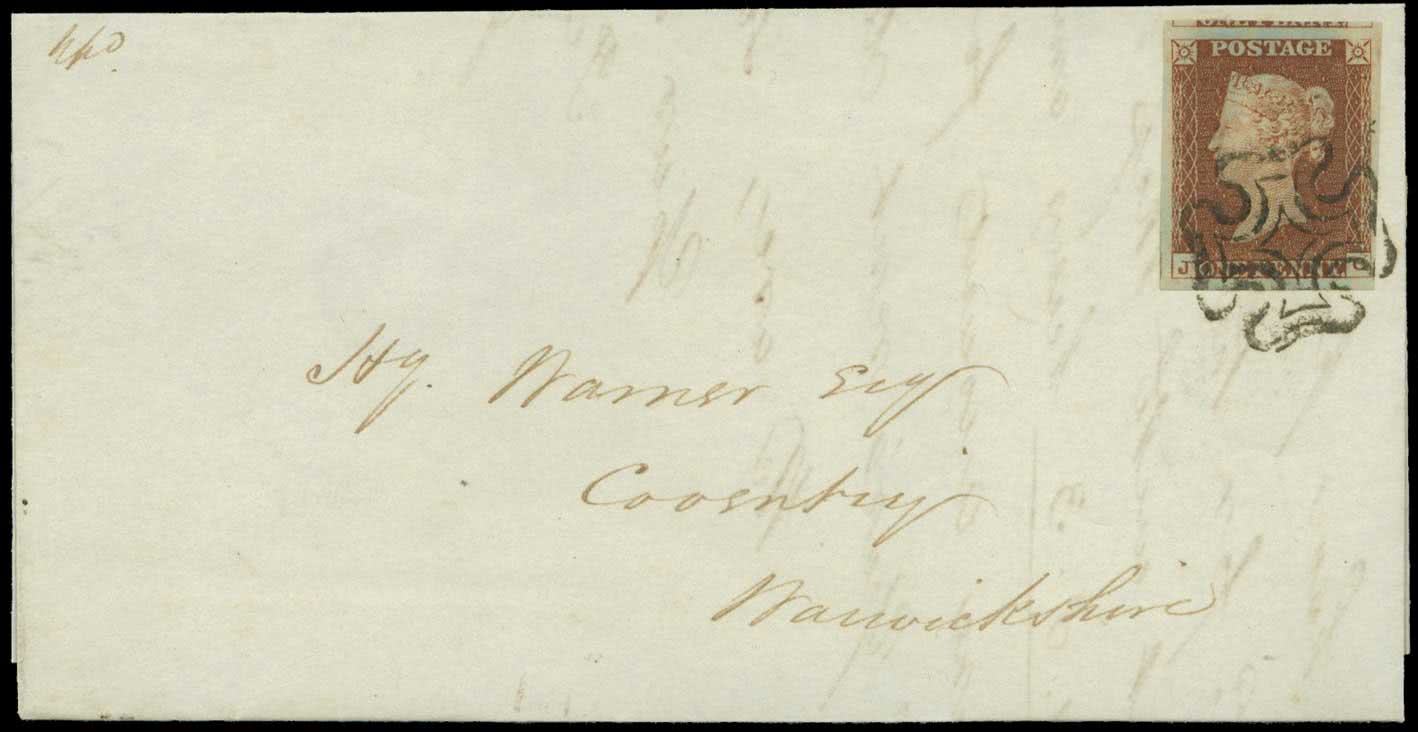 ppd
ONE PENNY
POSTAGE
J ONE PENNY G
Hy. Warner Esq
Coventry
Warwickshire